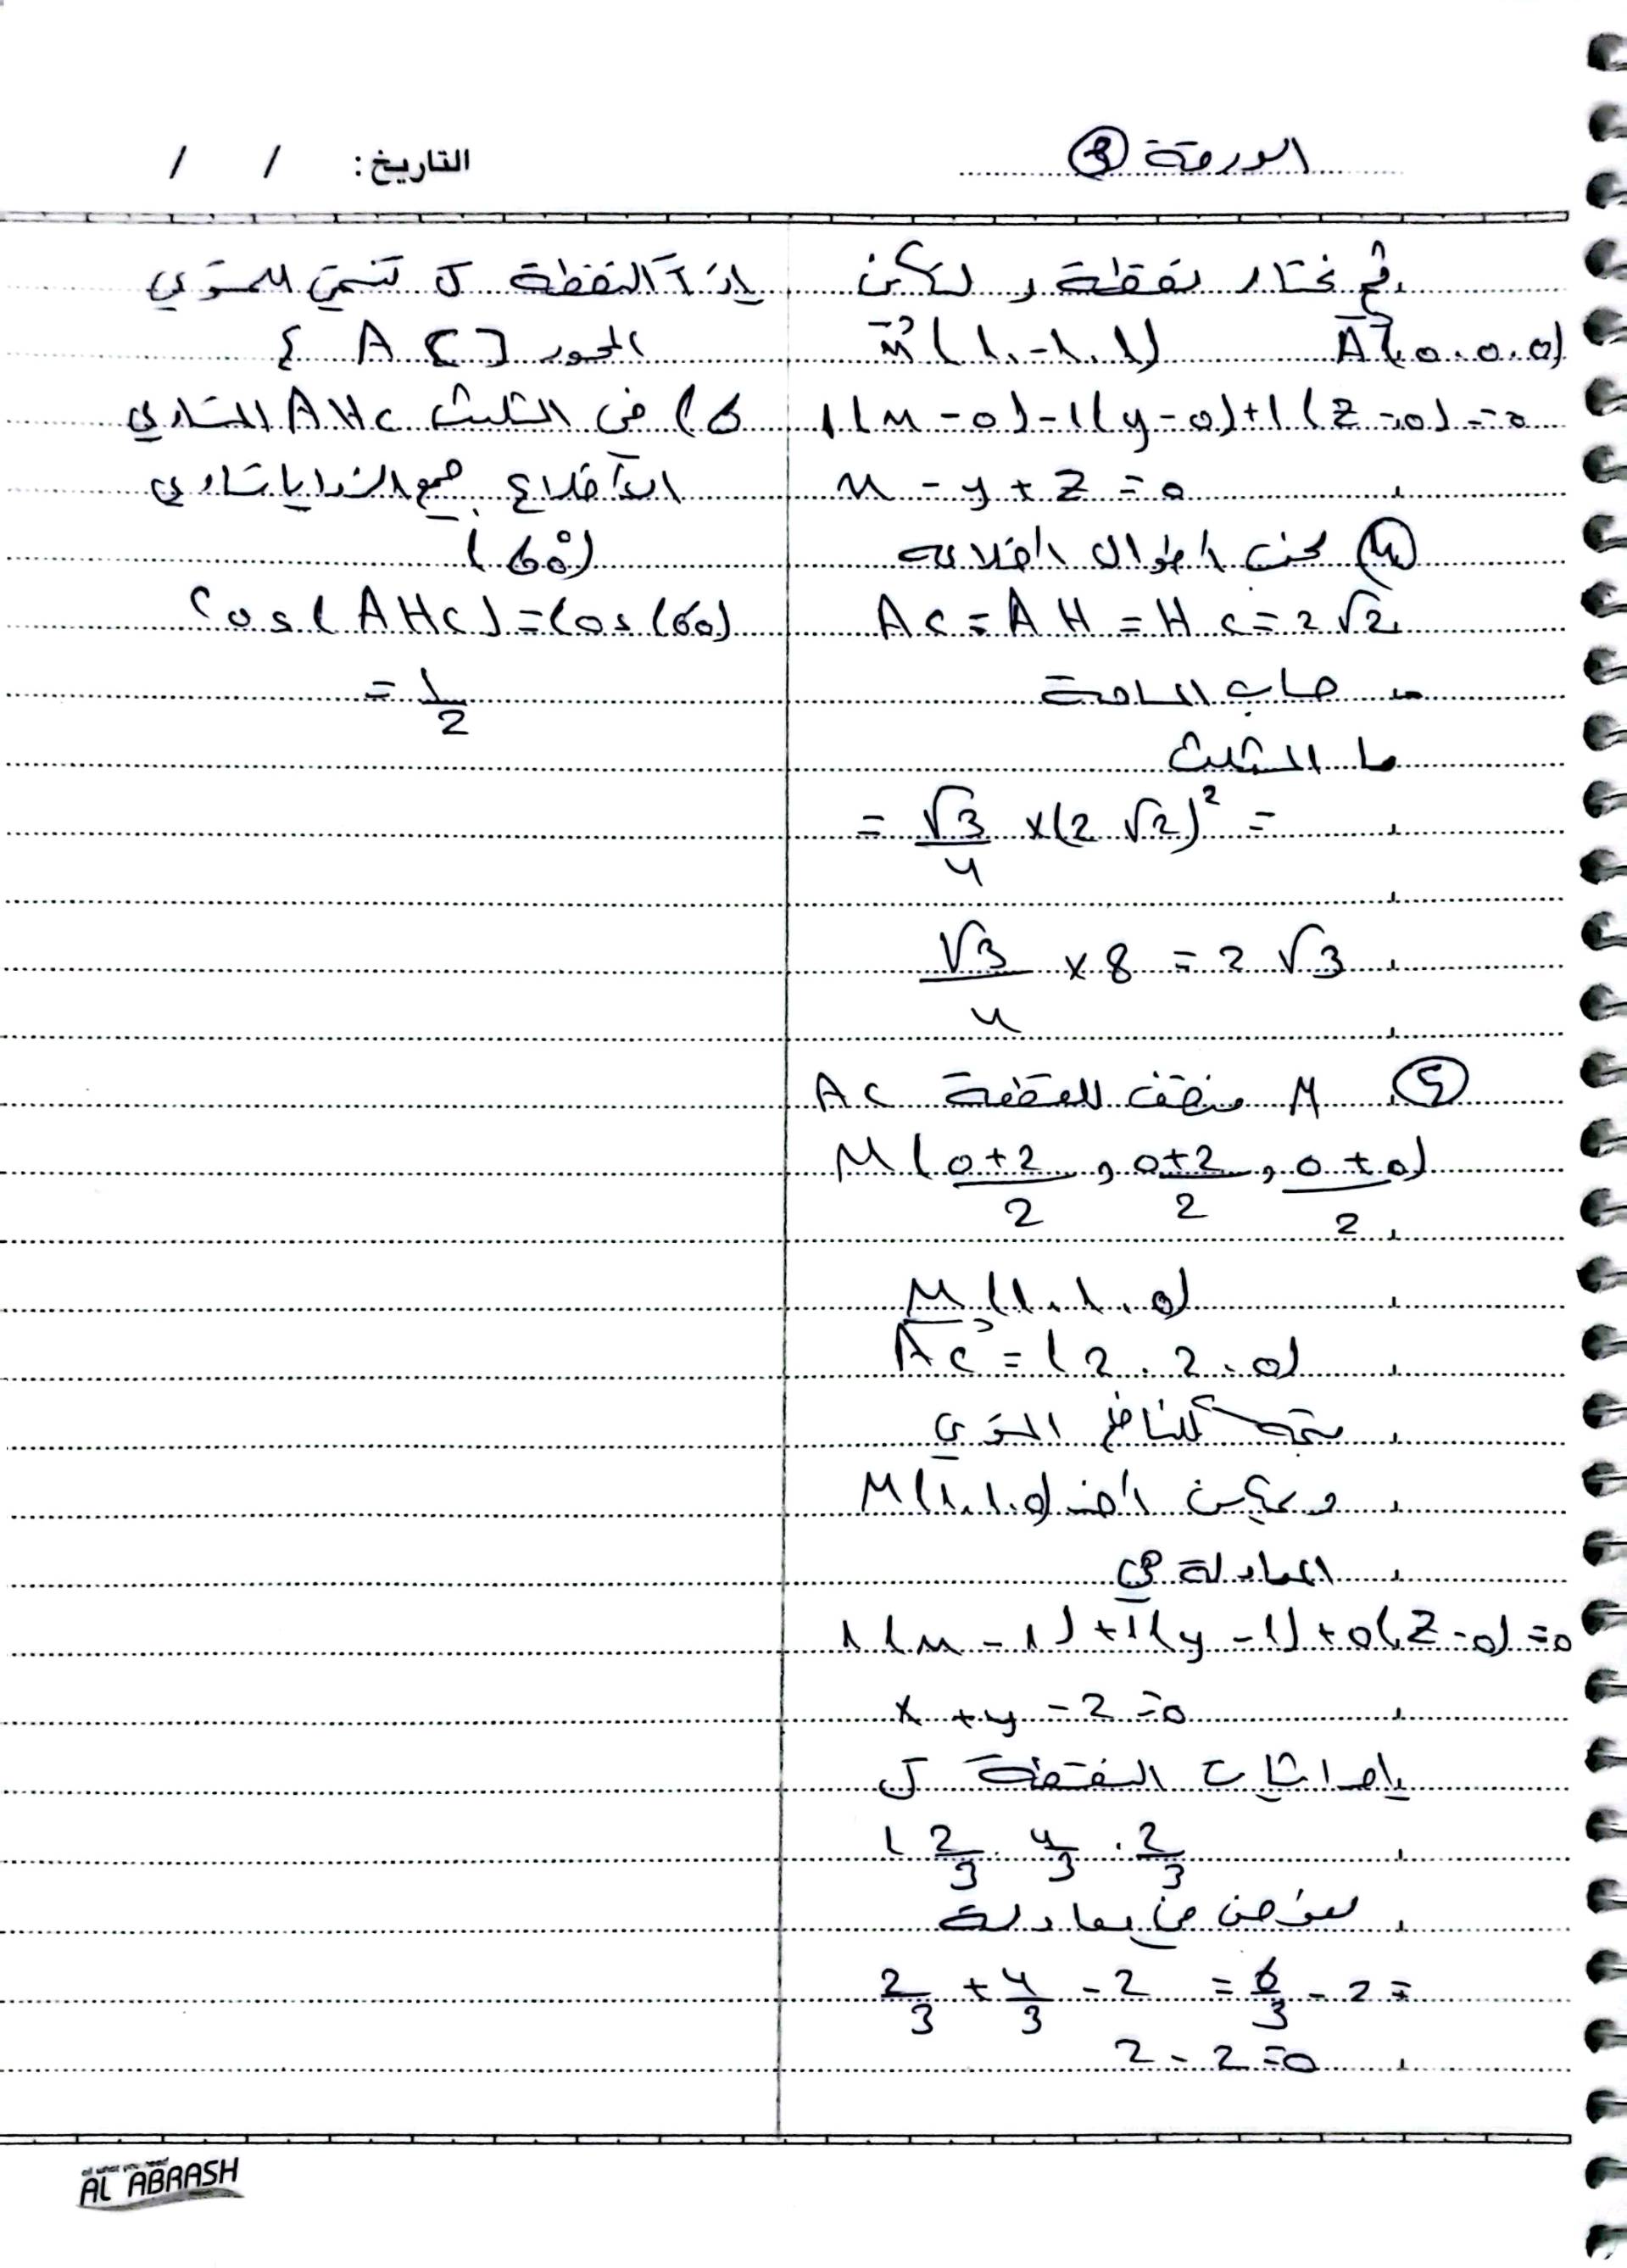 الورقة ③
التاريخ: / /
ثم نختار نقطة ولتكن
A(0.0.0) n(1.-1.1)
1(x-0)-1(y-0)+1(z-0)=0
x-y+z=0
④ نحسب اطوال اضلاعه
AC=AH=HC=2√2
حساب المساحة
المثلث
= √3/4 ×(2√2)² =
√3/4 ×8 = 2√3
⑤ M منتصف القطعة AC
M(0+2/2, 0+2/2, 0+0/2)
M(1.1.0)
AC=(2.2.0)
المستوي
M(1.1.0)
المعادلة هي
1(x-1)+1(y-1)+0(z-0)=0
x+y-2=0
إحداثيات النقطة J
(2/3. 4/3. 2/3
نعوض في معادلة
2/3+4/3-2 = 6/3-2=
2-2=0
إذاً النقطة J تنتمي للمستوي
المحور [AC]
6) في المثلث AHC المتساوي
الأضلاع جميع الزوايا تساوي
(60°)
Cos(AHC)=Cos(60)
= 1/2
all what you need
AL ABRASH